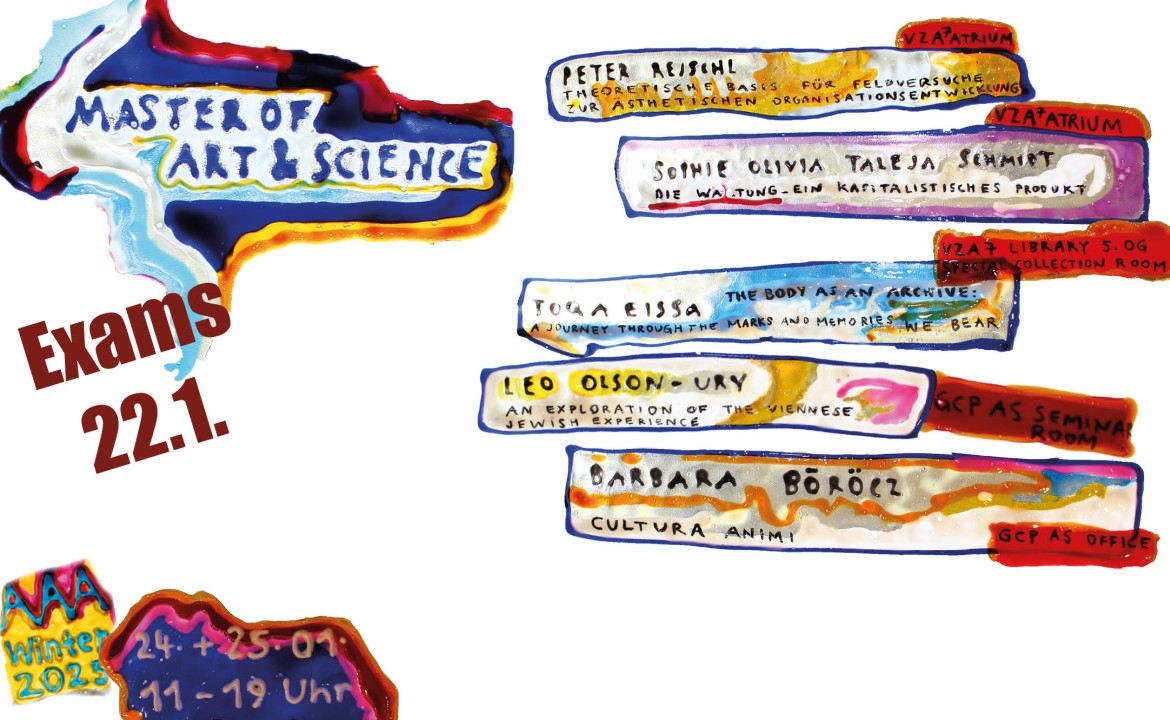 MASTER OF
ART & SCIENCE
Exams
22.1.
VZA7 ATRIUM
PETER REISCHL
THEORETISCHE BASIS FÜR FELDVERSUCHE
ZUR ÄSTHETISCHEN ORGANISATIONSENTWICKLUNG
VZA7 ATRIUM
SOPHIE OLIVIA TALEJA SCHMIDT
DIE WALTUNG-EIN KAPITALISTISCHES PRODUKT
VZA7 LIBRARY 5.OG
SPECIAL COLLECTION ROOM
TOQA EISSA THE BODY AS AN ARCHIVE:
A JOURNEY THROUGH THE MARKS AND MEMORIES WE BEAR
LEO OLSON-URY
AN EXPLORATION OF THE VIENNESE
JEWISH EXPERIENCE
GCP AS SEMINAR
ROOM
BARBARA BÖRÖCZ
CULTURA ANIMI
GCP AS OFFICE
AVAA
Winter
2025
24. + 25.01.
11 - 19 Uhr